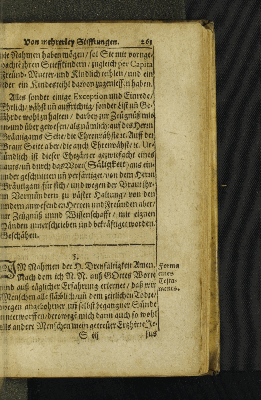 Von mehrerley Stifftungen. 261
die Nahmen haben mögen/ sol Sie mit vorge-
dachte ihren Stieffkindern/ zugleich per Capita
Freund- Mutter- und Kindlich theilen/ und ein
jeder ein Kindestheil davon zugeniessen haben.
Alles sonder einige Exception und Einrede/
Ehrlich/ wahr uñ auffrichtig/ sonder list uñ Ge-
fährde wohl zu halten/ darbey zur Zeugnüs mit-
an- und über gewesen/ als nämlich: auf des Herrn
Bräutigams Seite die Ehrenwäste ꝛc. Auf der
Braut Seite aber/ die auch Ehrenwäste ꝛc. Ur-
kündlich ist dieser Ehezärter gezwyfacht eines
lauts/ uñ durch das Wort (Säligkeit) aus ein-
ander geschnitten uñ verfärtiget/ von dem Herrn
Bräutigam für sich/ und wegen der Braut ihr-
en Vormündern zu väster Haltung/ von den
andern anwesenden Herren und Freunden aber/
zur Zeugnüs und Wissenschafft/ mit eignen
Händen unterschrieben und bekräfftiget worden.
Geschähen.
5.
IM Nahmen der H. Dreyfaltigkeit Amen.
Nach dem ich N. N. auß GOttes Wort
und auß täglicher Erfahrung erlernet/ daß wir
Menschen alle stärblich/ uñ dem zeitlichen Tode/
wegen angebohrner uñ selbst begangner Sünde
unterworffen/ derowegē mich dann auch so wohl
als andere Menschen mein getreuer Ertzhirte Je-
Forma
eines
Testa-
ments.
S iij sus